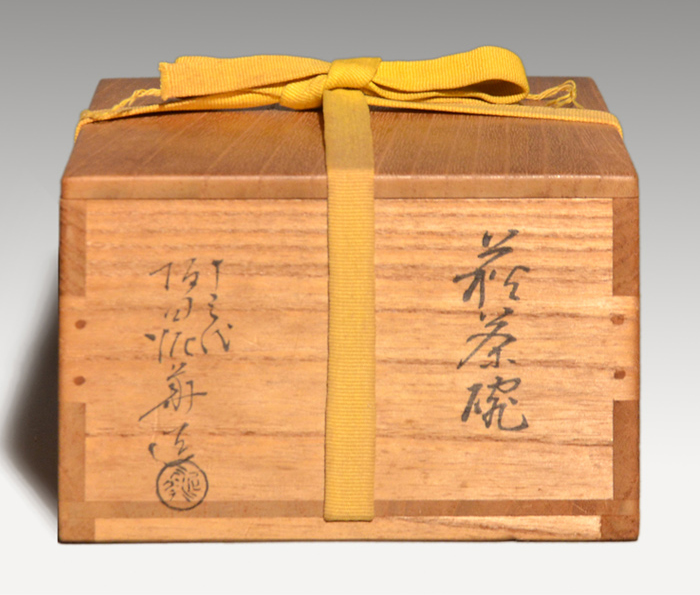 萩茶碗
十三代
坂田泥華造